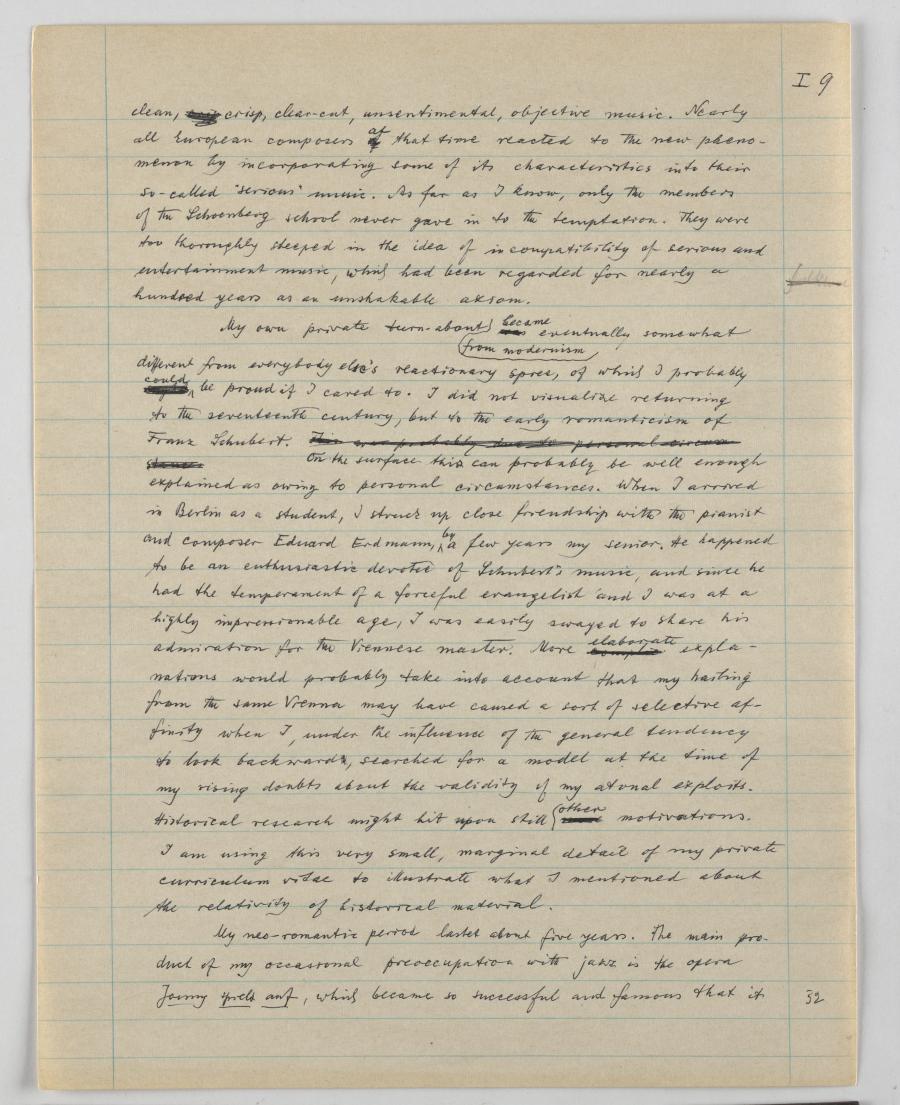 I 9
clean, crisp, clear-cut, unsentimental, objective music. Nearly
all European composers at that time reacted to the new pheno-
menon by incorporating some of its characteristics into their
so-called "serious" music. As far as I know, only the members
of the Schoenberg school never gave in to the temptation. They were
too thoroughly steeped in the idea of incompatibility of serious and
entertainment music, which had been regarded for nearly a
hundred years as an unshakable axiom.
My own private turn-about became eventually somewhat
from modernism
different from everybody else's reactionary spree, of which I probably
could be proud if I cared to. I did not visualize returning
to the seventeenth century, but to the early romanticism of
Franz Schubert. This was probably due to personal circum
stances On the surface this can probably be well enough
explained as owing to personal circumstances. When I arrived
in Berlin as a student, I struck up close friendship with the pianist
and composer Eduard Erdmann, by a few years my senior. He happened
to be an enthusiastic devotee of Schubert's music, and since he
had the temperament of a forceful evangelist and I was at a
highly impressionable age, I was easily swayed to share his
admiration for the Viennese master. More elaborate expla-
nations would probably take into account that my hailing
from the same Vienna may have caused a sort of selective af-
finity when I, under the influence of the general tendency
to look backward, searched for a model at the time of
my rising doubts about the validity of my atonal exploits.
Historical research might hit upon still other motivations.
I am using this very small, marginal detail of my private
curriculum vitae to illustrate what I mentioned about
the relativity of historical material.
My neo-romantic period lastet about five years. The main pro-
duct of my occasional preoccupation with jazz is the opera
Jonny spielt auf, which became so successful and famous that it
32